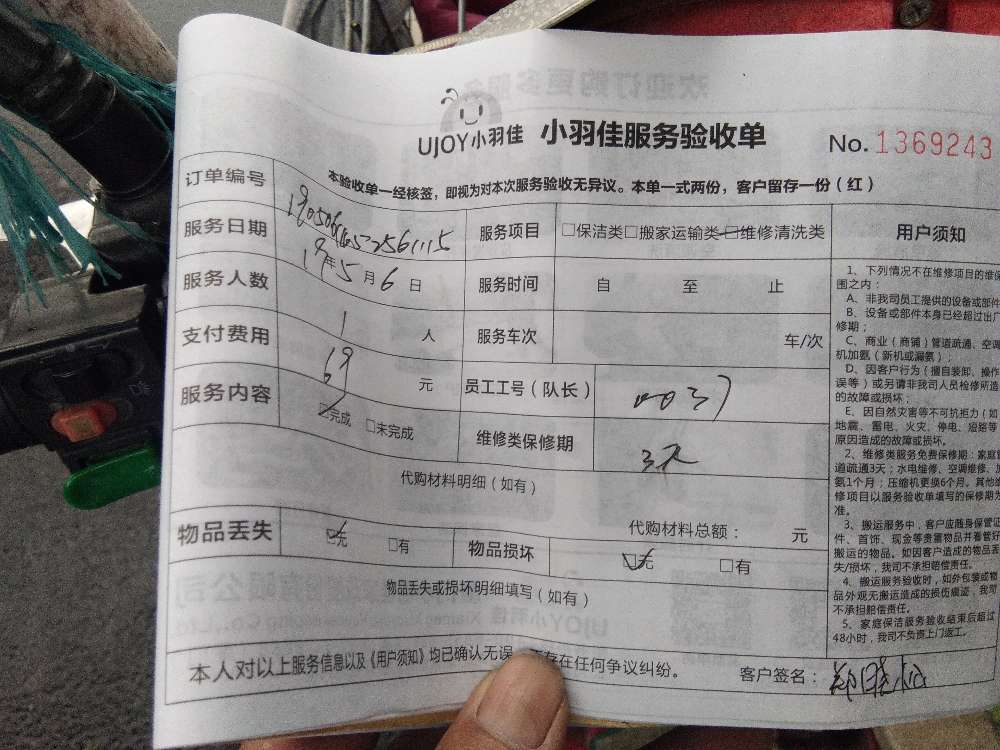 UJOY小羽佳 小羽佳服务验收单 No.1369243
本验收单一经核签，即视为对本次服务验收无异议。本单一式两份，客户留存一份（红）
订单编号
服务日期 19年5月6日
服务项目 □保洁类□搬家运输类□维修清洗类
服务人数 1人
服务时间 自 至 止
支付费用 69元
服务车次 车/次
服务内容 完成 □未完成
员工工号（队长）
维修类保修期 3天
代购材料明细（如有）
代购材料总额： 元
物品丢失 无 □有
物品损坏 无 □有
物品丢失或损坏明细填写（如有）
本人对以上服务信息以及《用户须知》均已确认无误 存在任何争议纠纷。
客户签名：
用户须知
1、下列情况不在维修项目的维保
围之内：
A、非我司员工提供的设备或部件
B、设备或部件本身已经超过出厂
修期；
C、商业（商铺）管道疏通、空调
机加氨（新机或漏氨）；
D、因客户行为（擅自装卸、操作
误等）或另请非我司人员检修所造
的故障或损坏；
E、因自然灾害等不可抗拒力（如
地震、雷电、火灾、停电、短路等
原因造成的故障或损坏。
2、维修类服务免费保修期：家庭管
道疏通3天；水电维修、空调维修、加
氨1个月；压缩机更换6个月。其他维
修项目以服务验收单填写的保修期为
准。
3、搬运服务中，客户应随身保管证
件、首饰、现金等贵重物品并看管好
搬运的物品。如因客户造成的物品丢
失/损坏，我司不承担赔偿责任。
4、搬运服务验收时，如外包装或物
品外观无搬运造成的损伤痕迹，我司
不承担赔偿责任。
5、家庭保洁服务验收结束后超过
48小时，我司不负责上门返工。